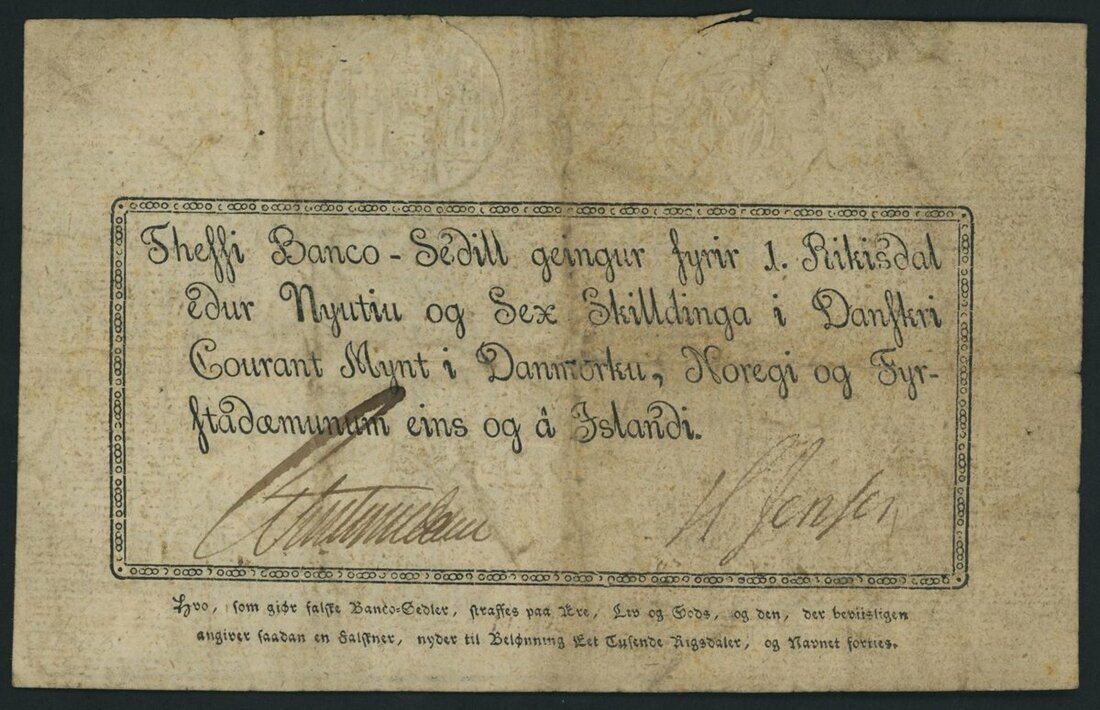 Theſſi Banco-Sedill geingur fyrir 1. Rikisdal
edur Nyutiu og Sex Skilldinga i Danſkri
Courant Mynt i Danmorku, Noregi og Fyr-
ſtadæmunum eins og â Islandi.
H Jenſen
Hvo, ſom giør falſke Banco-Sedler, ſtraffes paa Ære, Liv og Gods, og den, der beviisligen
angiver ſaadan en Falſkner, nyder til Belønning Eet Tuſende Rigsdaler, og Navnet forties.